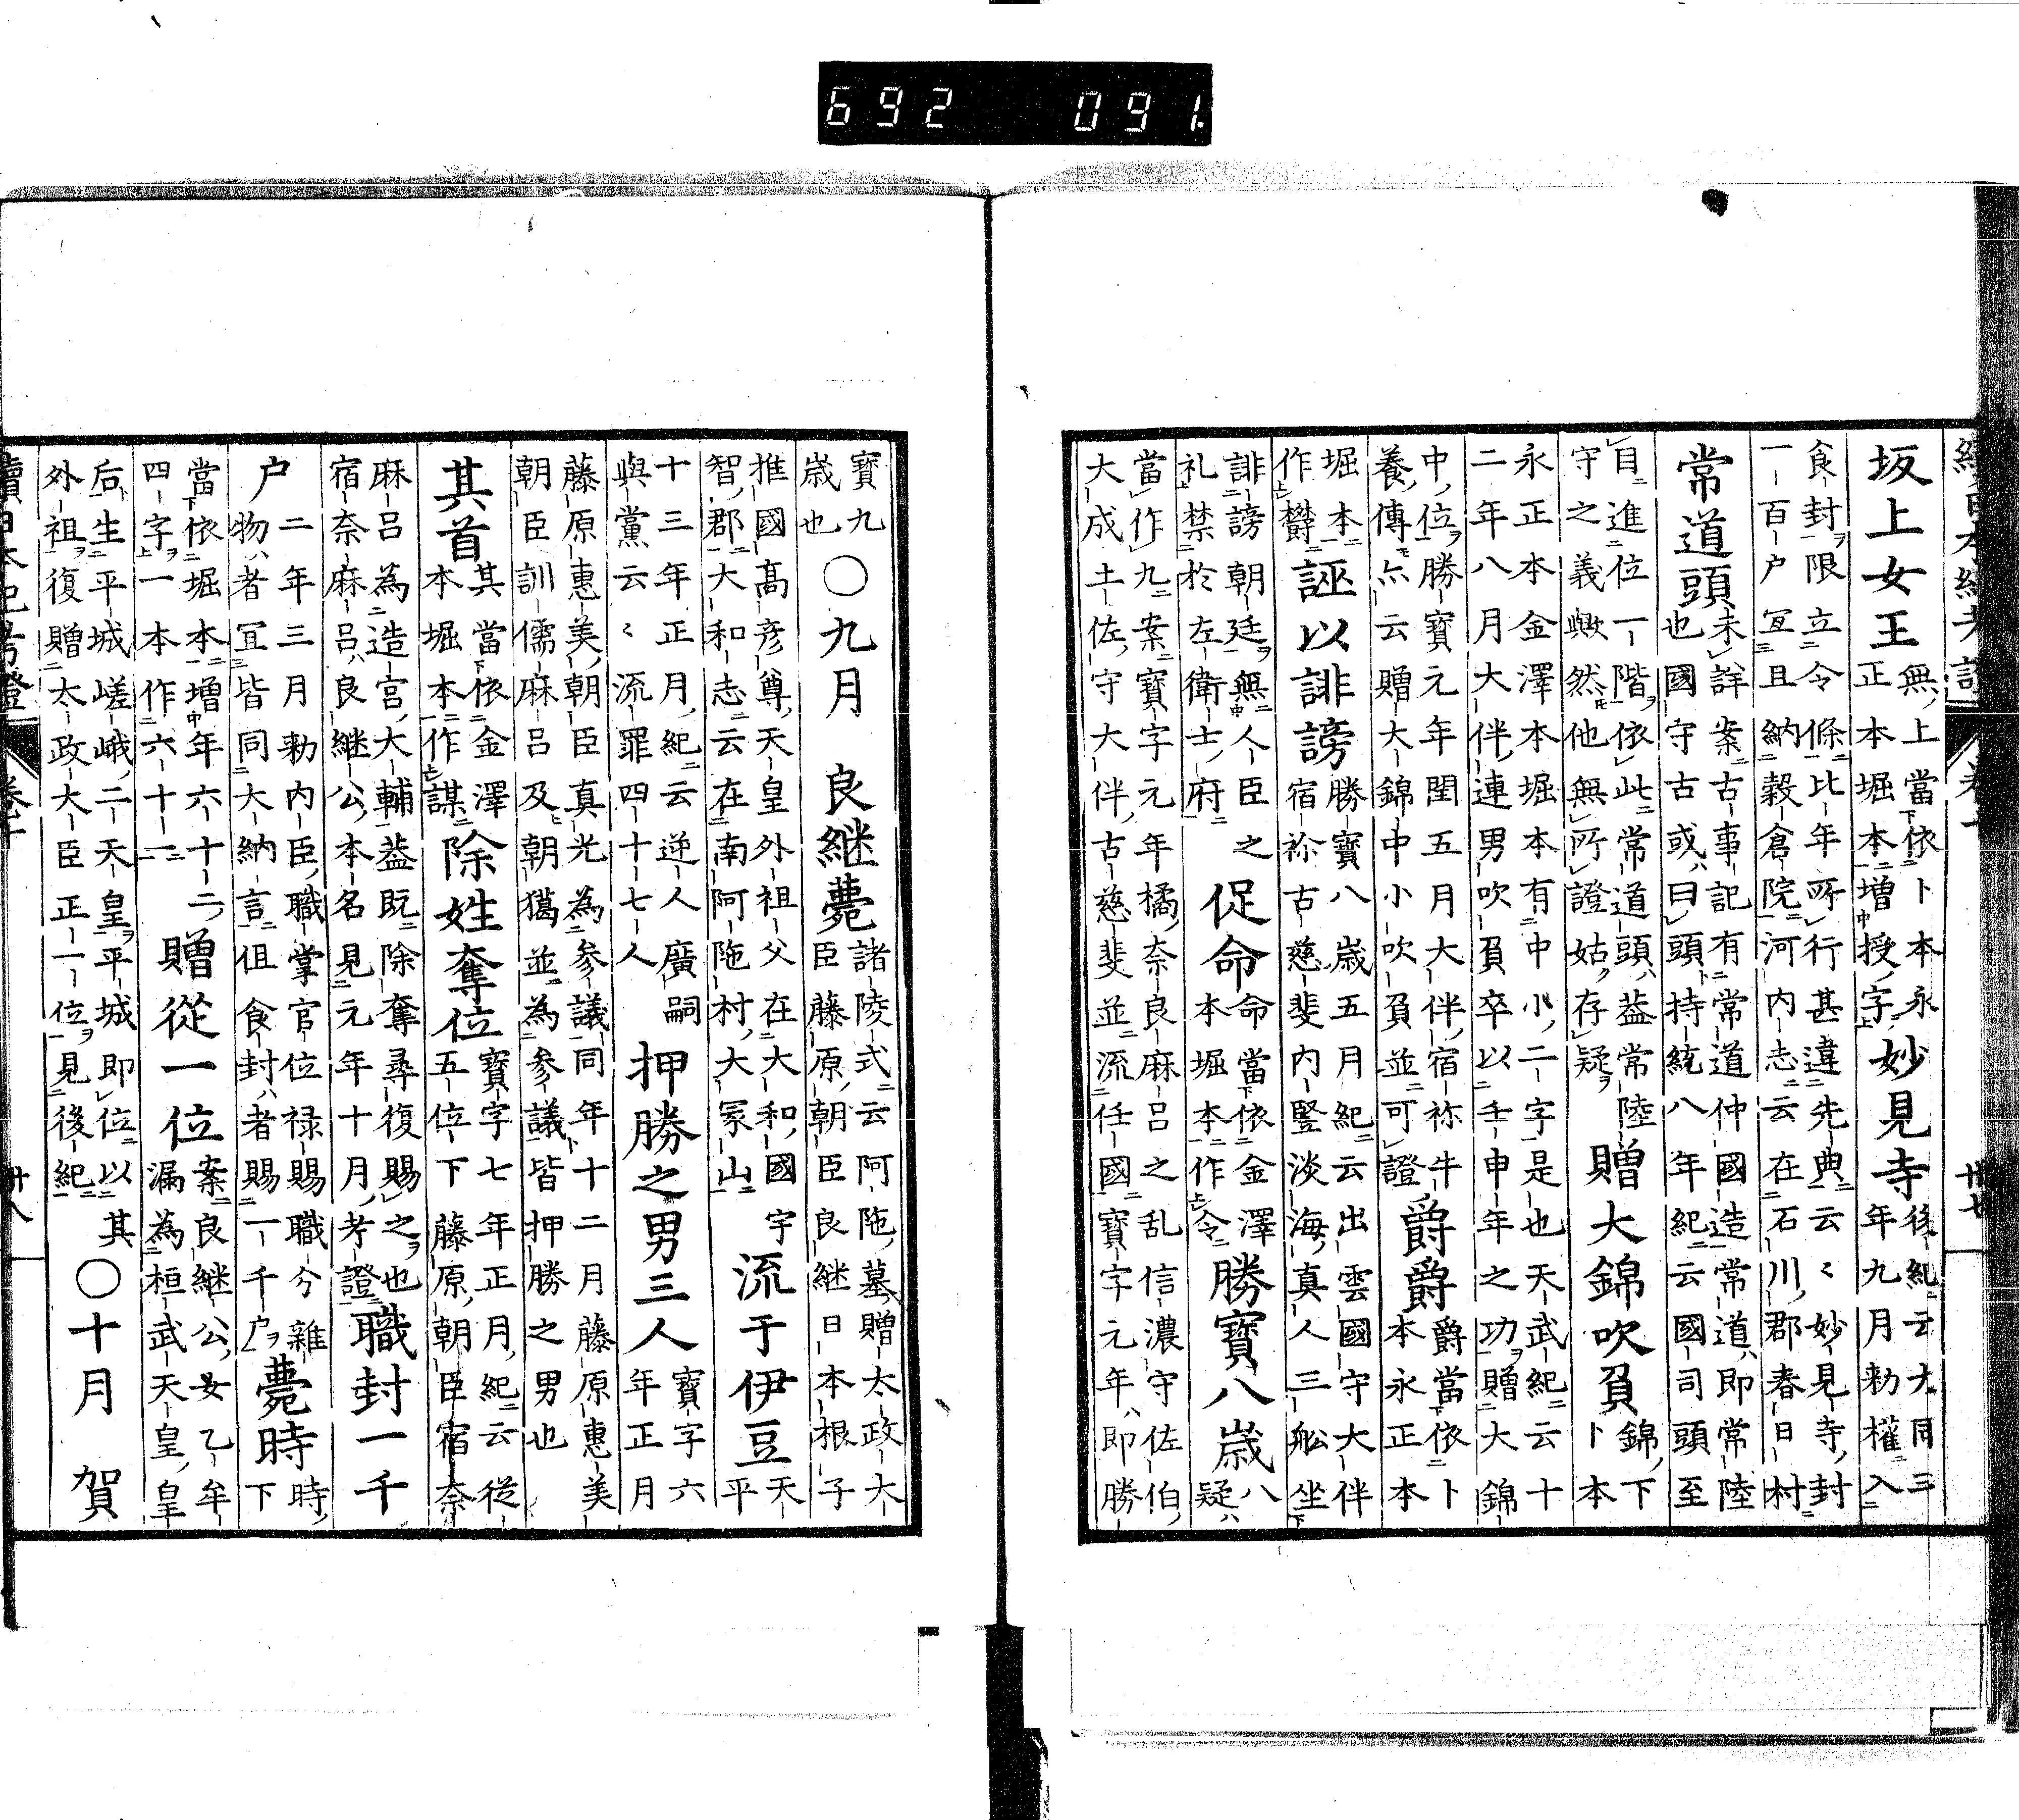 692 091
坂上女王
無上當依卜本永
正本堀本增授字
妙見寺
後紀云大同三
年九月勅權入
食封限立令條比年所行甚違先典云〻妙見寺封
一百戶宜且納穀倉院河内志云在石川郡春日村
常道頭
未詳案古事記有常道仲國造常道即常陸
也國守古或曰頭持統八年紀云國司頭至
自進位一階依此常道頭蓋常陸
守之義歟然他無所證姑存疑
贈大錦吹負
錦下
卜本
永正本金澤本堀本有中小二字是也天武紀云十
二年八月大伴連男吹負卒以壬申年之功贈大錦
中位勝寶元年閏五月大伴宿祢牛
養傳亦云贈大錦中小吹負並可證
爵爵
爵當依卜
本永正本
堀本
作欝
誣以誹謗
勝寶八歲五月紀云出雲國守大伴
宿祢古慈斐内竪淡海真人三舩坐
誹謗朝廷無人臣之
礼禁於左衛士府
促命
命當依金澤
本堀本作令
勝寶八歲
八
疑
當作九案寶字元年橘奈良麻呂之乱信濃守佐伯
大成土佐守大伴古慈斐並流任國寶字元年即勝
寶九
歲也
〇九月 良継薨
諸陵式云阿陁墓贈太政大
臣藤原朝臣良継日本根子
推國高彥尊天皇外祖父在大和國宇
智郡大和志云在南阿陁村大冢山
流于伊豆
天
平
十三年正月紀云逆人廣嗣
與黨云〻流罪四十七人
押勝之男三人
寶字六
年正月
藤原惠美朝臣真光為參議同年十二月藤原惠美
朝臣訓儒麻呂及朝獦並為參議皆押勝之男也
其首
其當依金澤
本堀本作謀
除姓奪位
寶字七年正月紀云從
五位下藤原朝臣宿奈
麻呂為造宮大輔蓋既除奪尋復賜之也
宿奈麻呂良継公本名見元年十月考證
職封一千
戶
二年三月勅内臣職掌官位禄賜職分雜
物者宜皆同大納言但食封者賜一千戶
薨時
時
下
當依堀本增年六十二
四字一本作六十一
贈從一位
案良継公女乙牟
漏為桓武天皇皇
后生平城嵯峨二天皇平城即位以其
外祖復贈太政大臣正一位見後紀
〇十月 賀